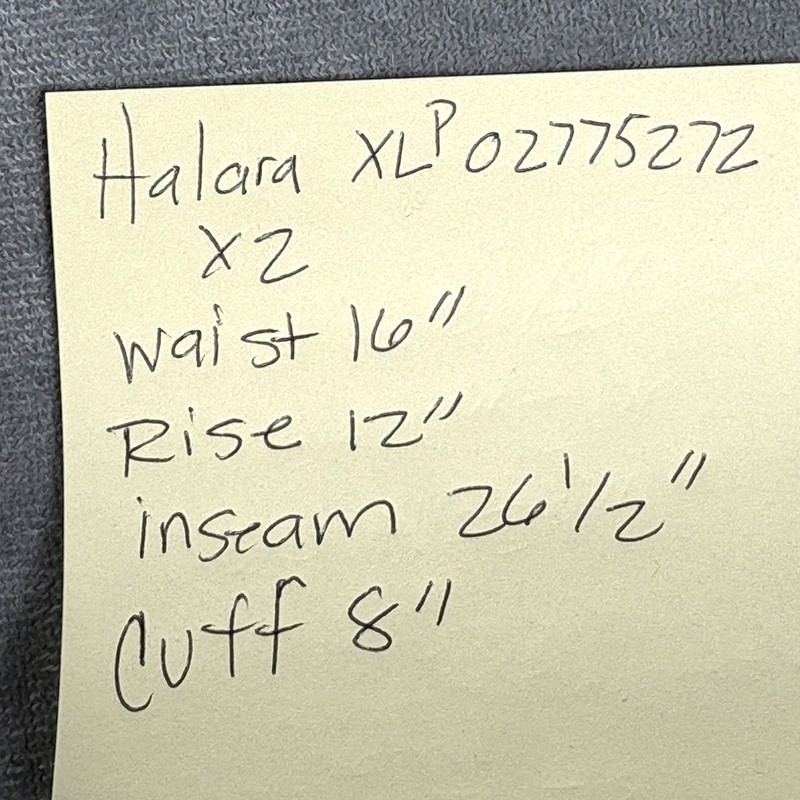 Halara XLP 02775272
X2
Waist 16"
Rise 12"
inseam 26 1/2"
Cuff 8"